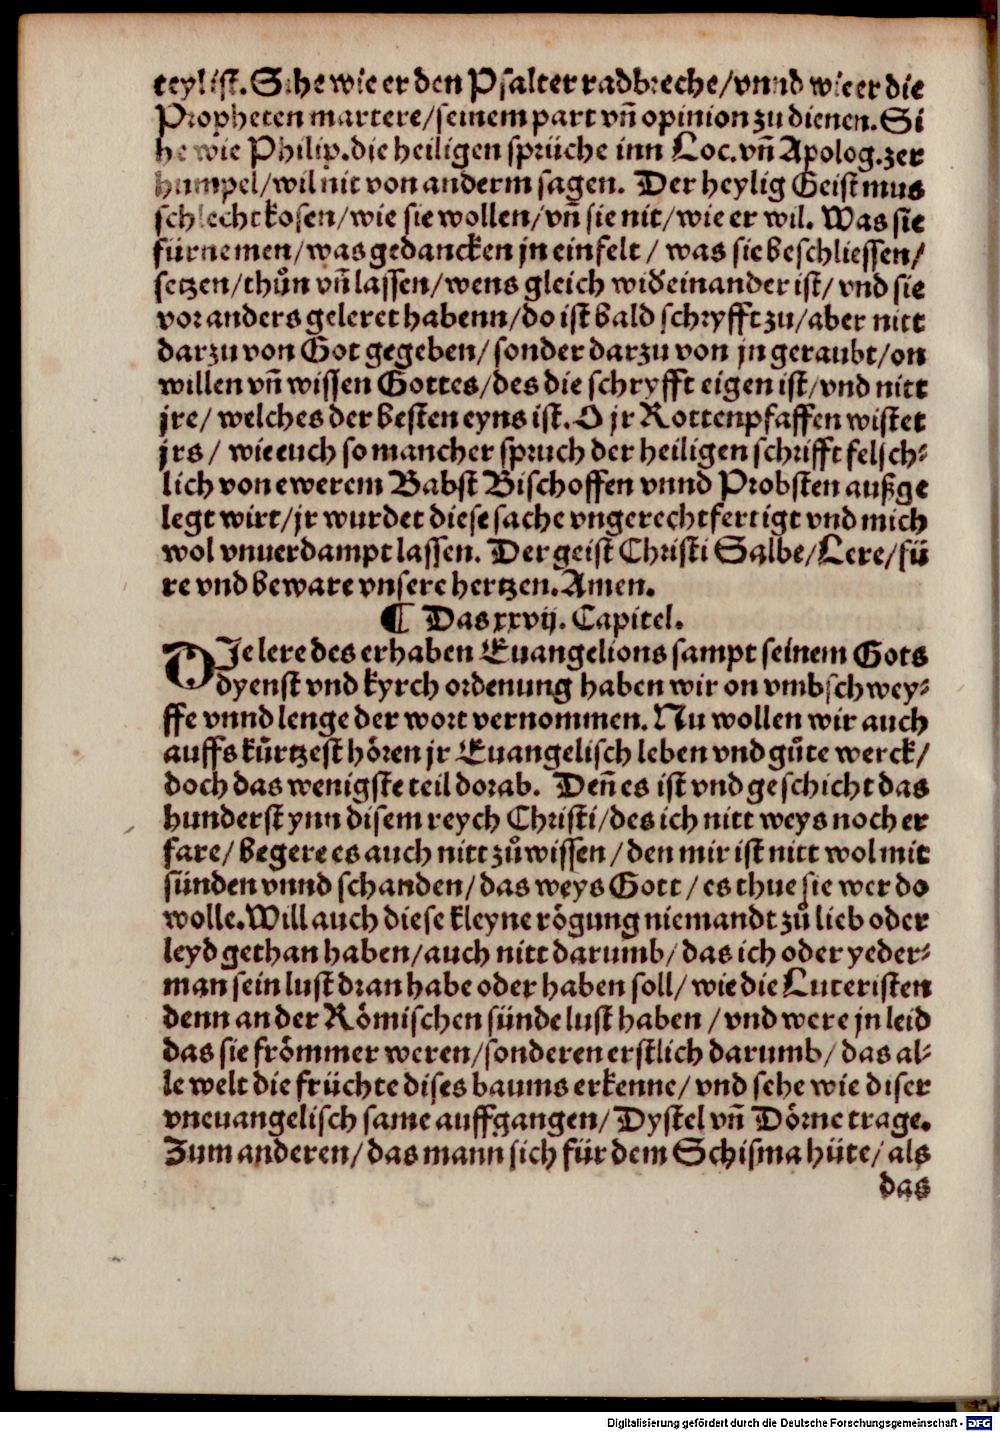 teyl ist. Sihe wie er den Psalter radbreche/vnnd wie er die
Propheten martere/seinem part vñ opinion zu dienen. Si
he wie Philip. die heiligen sprüche inn Loc. vñ Apolog. zer
humpel/wil nit von anderm sagen. Der heylig Geist mus
schlecht kosen/wie sie wollen/vñ sie nit/wie er wil. Was sie
fürnemen/was gedancken jn einfelt/ was sie beschliessen/
setzen/thůn vñ lassen/wens gleich wid̕einander ist/ vnd sie
vor anders geleret habenn/do ist bald schryfft zu/aber nitt
darzu von Got gegeben/ sonder darzu von jn geraubt/on
willen vñ wissen Gottes/des die schryfft eigen ist/vnd nitt
jre/ welches der besten eyns ist. O jr Rottenpfaffen wistet
jrs/ wie euch so mancher spruch der heiligen schrifft felsch⸗
lich von ewerem Babst Bischoffen vnnd Probsten außge
legt wirt/jr wurdet diese sache vngerechtfertigt vnd mich
wol vnuerdampt lassen. Der geist Christi Salbe/Lere/fü
re vnd beware vnsere hertzen. Amen.
¶ Das xxvij. Capitel.
DJe lere des erhaben Euangelions sampt seinem Gots
dyenst vnd kyrch ordenung haben wir on vmbschwey⸗
ffe vnnd lenge der wort vernommen. Nu wollen wir auch
auffs kürtzest hören jr Euangelisch leben vnd gůte werck/
doch das wenigste teil dorab. Deñ es ist vnd geschicht das
hunderst ynn disem reych Christi/des ich nitt weys noch er
fare/ begere es auch nitt zůwissen/den mir ist nitt wol mit
sünden vnnd schanden/das weys Gott/es thue sie wer do
wolle. Will auch diese kleyne rögung niemandt zů lieb oder
leyd gethan haben/auch nitt darumb/das ich oder yeder⸗
man sein lust dran habe oder haben soll/ wie die Luteristen
denn an der Römischen sünde lust haben/vnd were jn leid
das sie frömmer weren/sonderen erstlich darumb/ das al⸗
le welt die früchte dises baums erkenne/ vnd sehe wie diser
vneuangelisch same auffgangen/ Dystel vñ Dörne trage.
Zum anderen/das mann sich für dem Schisma hüte/ als
das
Digitalisierung gefördert durch die Deutsche Forschungsgemeinschaft - DFG